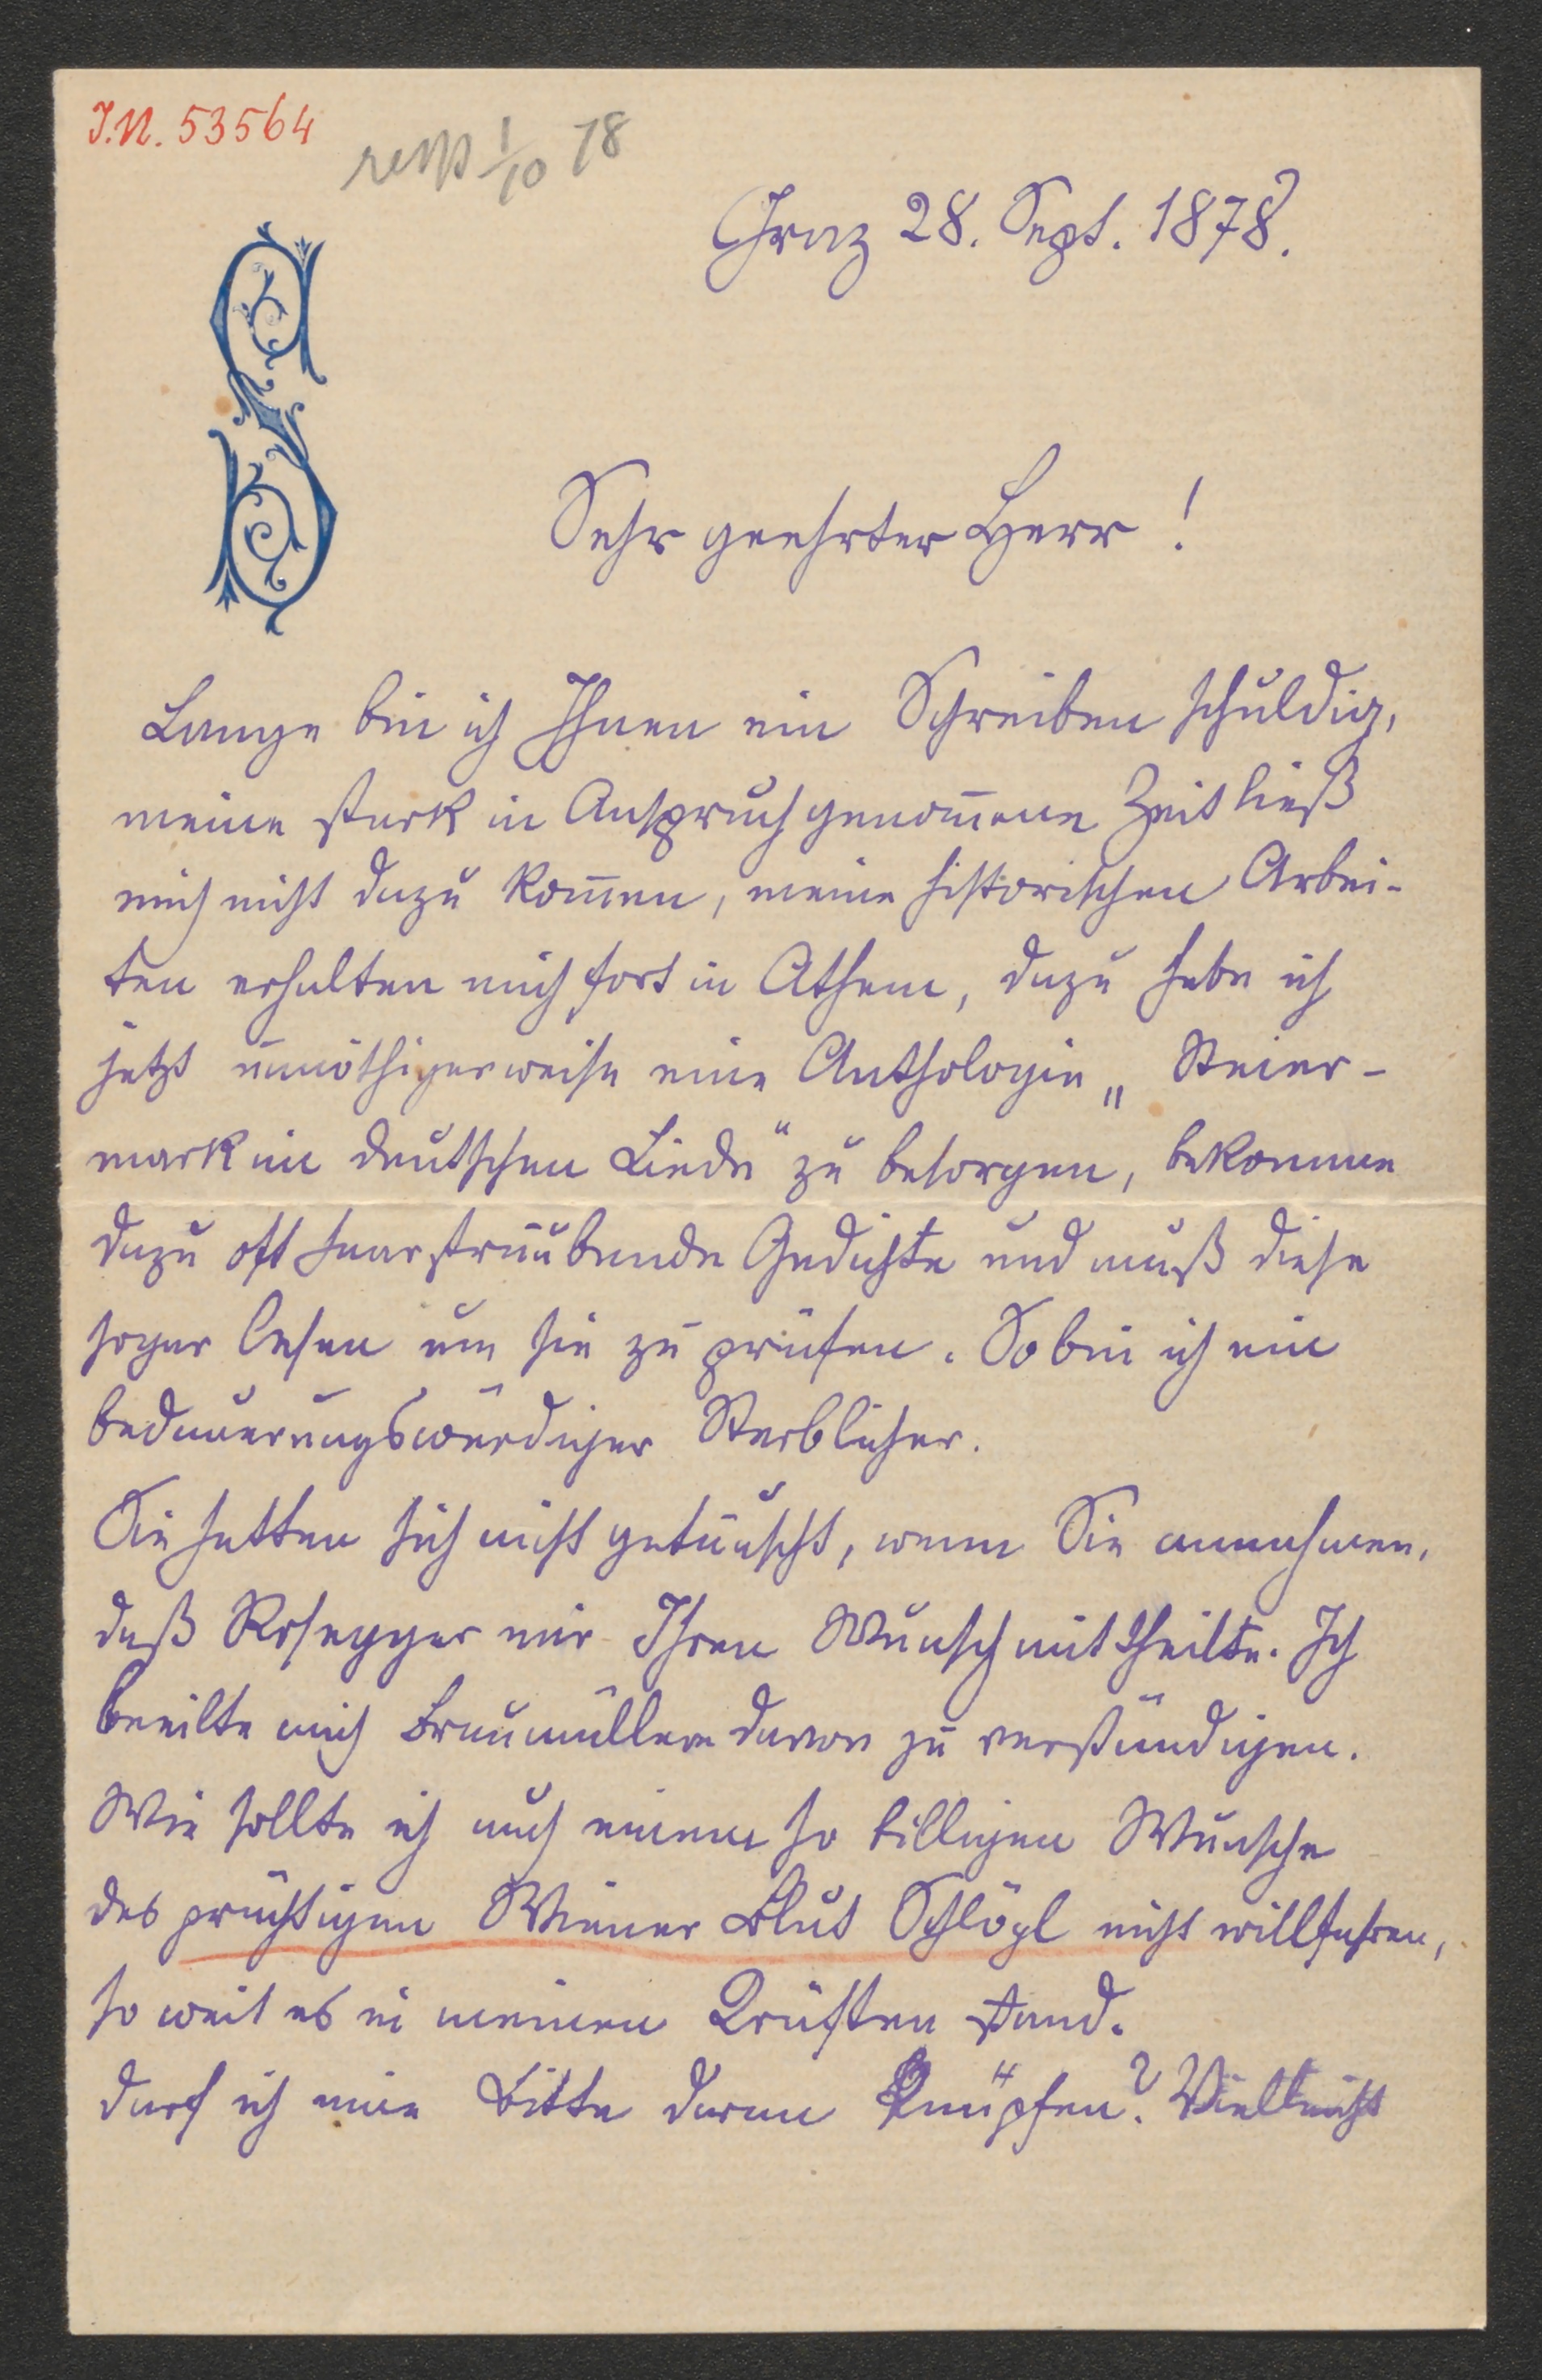 I.N. 53564
resp 1/10 78
Graz 28. Sept. 1878.
Sehr geehrter Herr!
Lange bin ich Ihnen ein Schreiben schuldig,
meine stark in Anspruch genom̅ene Zeit ließ
mich nicht dazu kom̅en, meine historischen Arbei-
ten erhalten mich fort in Athem, dazu habe ich
jetzt unnöthigerweise eine Anthologie „Steier-
mark im deutschen Liede" zu besorgen, bekomme
dazu oft haarsträubende Gedichte und muß diese
sogar lesen um sie zu prüfen. So bin ich ein
bedauerungswürdiger Sterblicher.
Sie hatten sich nicht getäuscht, wenn Sie annahmen,
daß Rosegger mir Ihren Wunsch mittheilte. Ich
beeilte mich Braumüllern davon zu verständigen.
Wie sollte ich auch einem so billigen Wunsche
des prächtigen Wiener Blut Schlögl nicht willfahren,
so weit es in meinen Kräften stand.
Darf ich eine Bitte daran knüpfen? Vielleicht